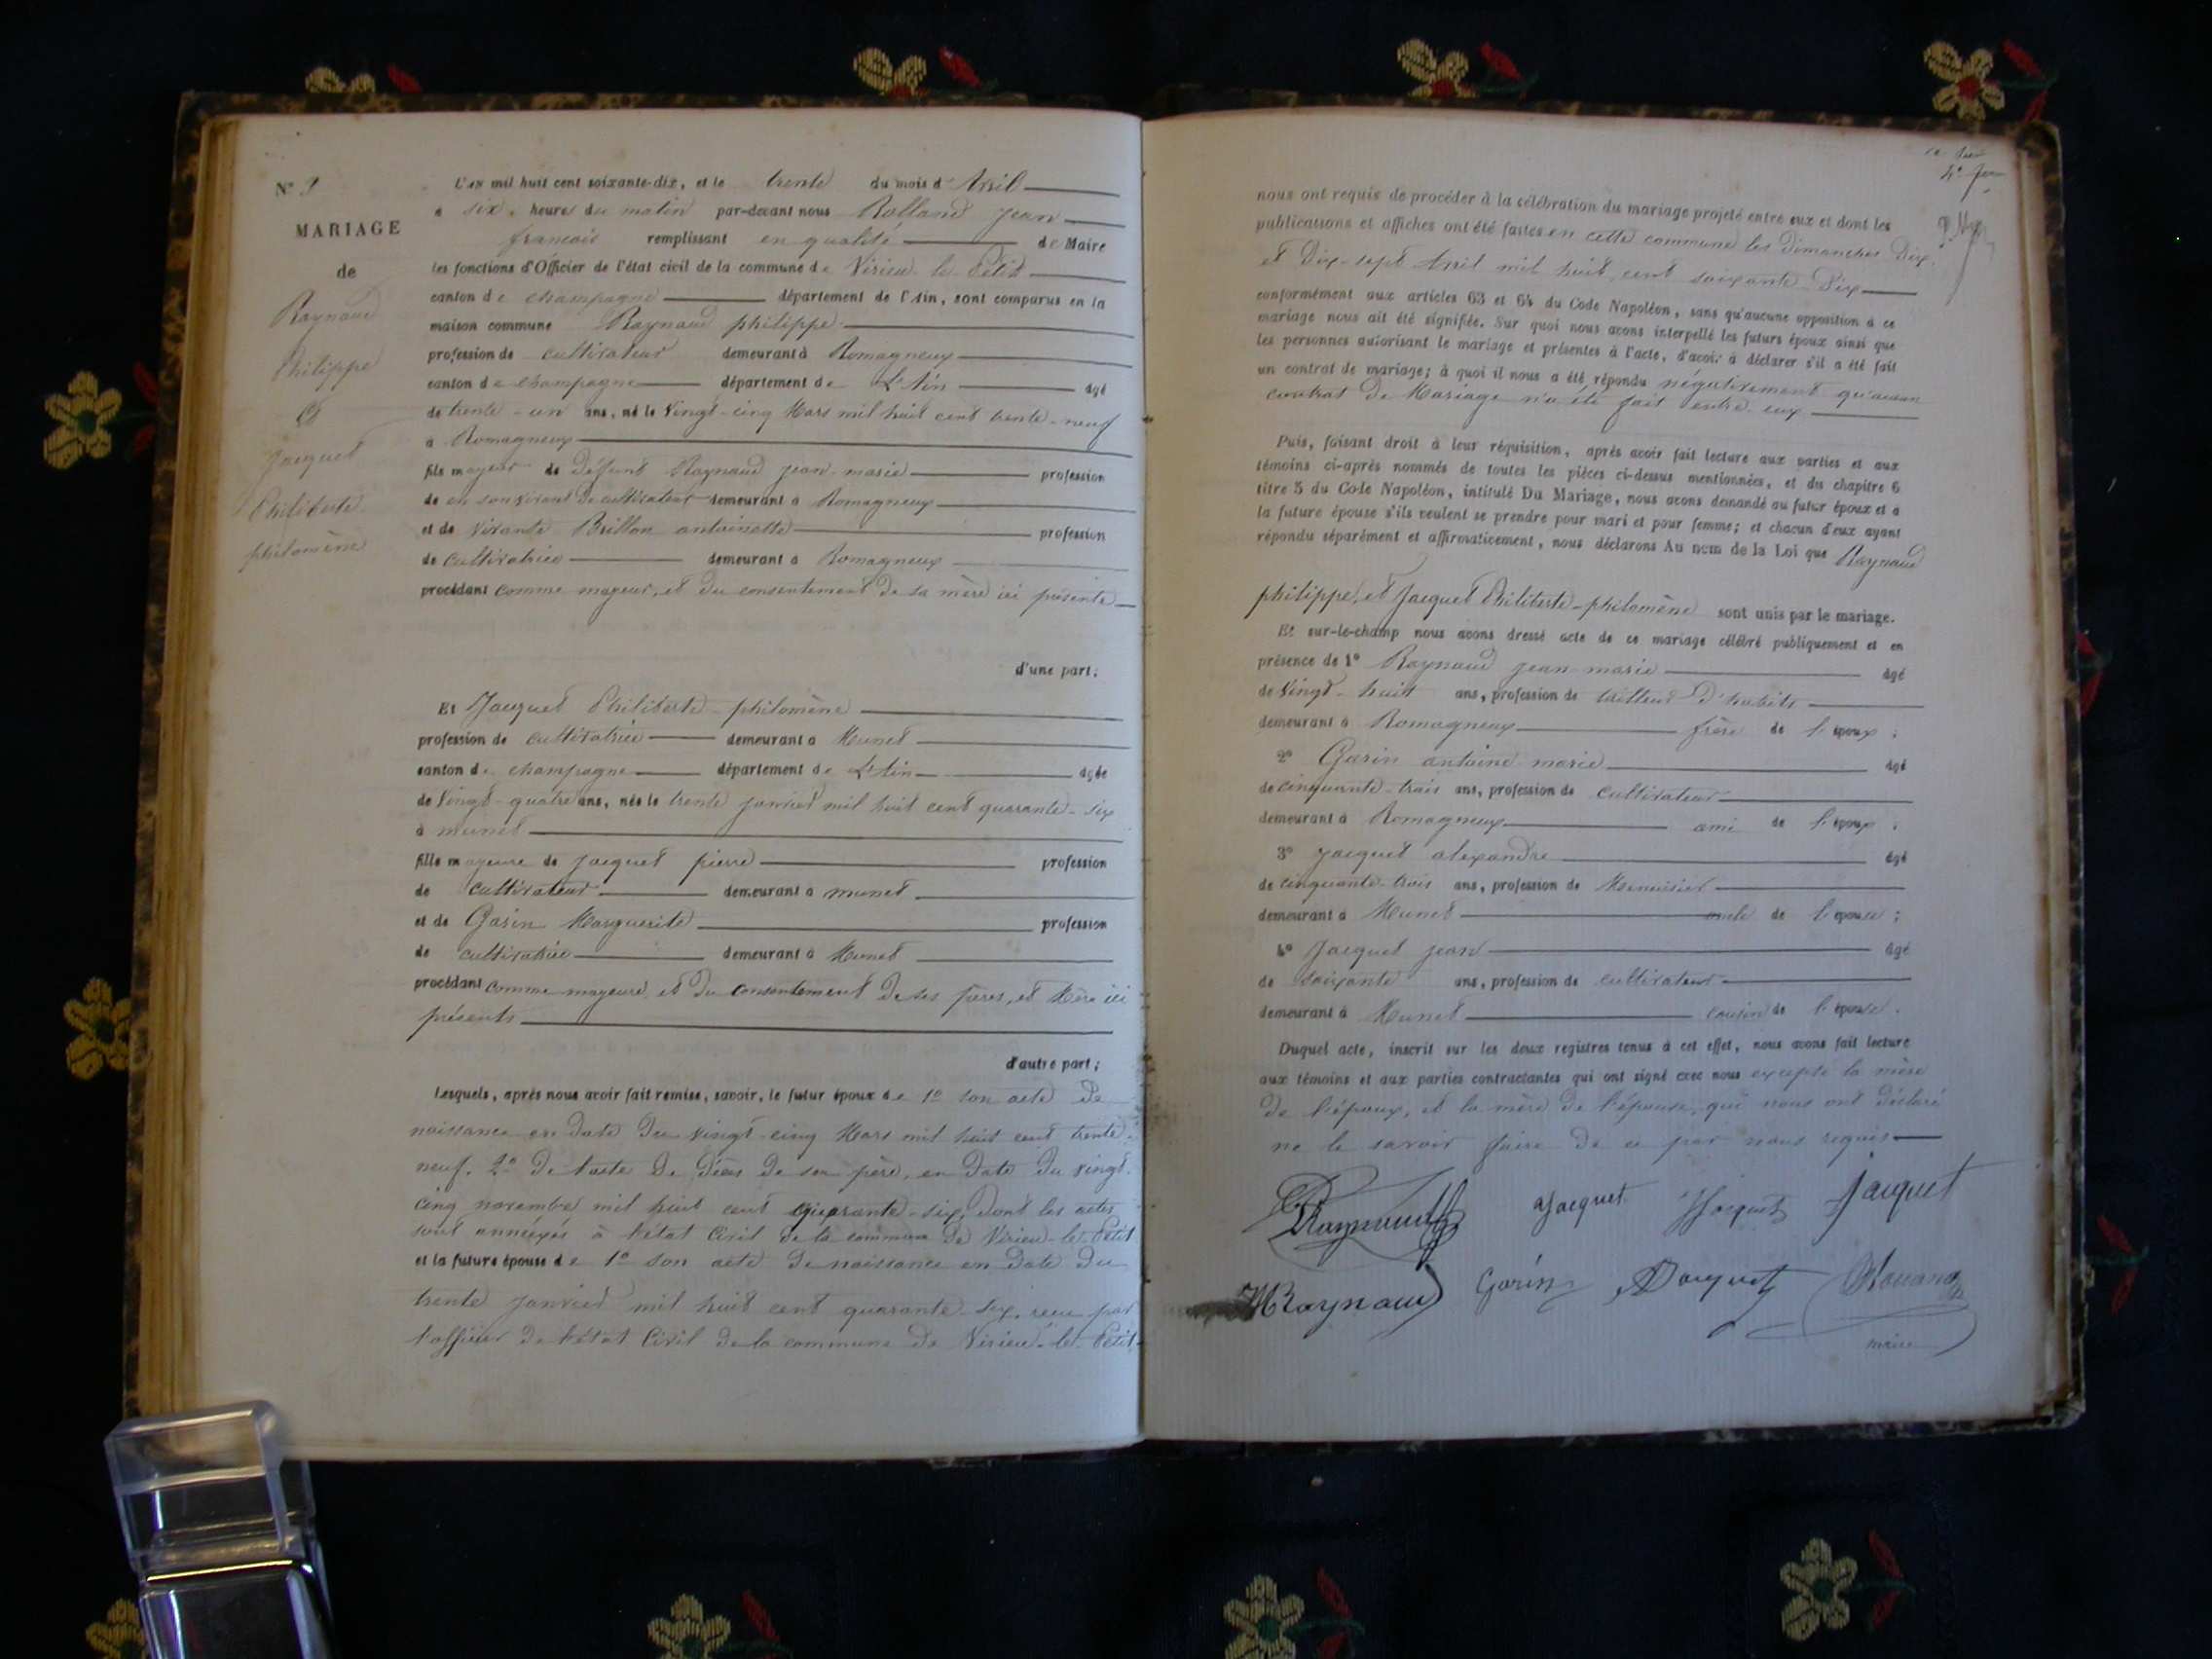 N° 9
MARIAGE
de
Raynaud
Philippe
Et
Jacquet
Philiberte
philomène
L'an mil huit cent soixante-dix, et le trente du mois d'Avril
à six heures du matin par-devant nous Rolland jean
francois remplissant en qualité de Maire
les fonctions d'Officier de l'état civil de la commune de Virieu-le-Petit
canton de champagne département de l'Ain, sont comparus en la
maison commune Raynaud philippe
profession de cultivateur demeurant à Romagneux
canton de champagne département de L'Ain âgé
de trente-un ans, né le Vingt-cinq Mars mil huit cent trente-neuf
à Romagneux
fils majeur de deffunt Raynaud jean-marie profession
de en son vivant de cultivateur demeurant à Romagneux
et de vivante Brillon antoinette profession
de cultivatrice demeurant à Romagneux
procédant comme majeur, et du consentement de sa mère ici présente
d'une part;
Et Jacquet Philiberte-philomène
profession de cultivatrice demeurant à Munet
canton de champagne département de L'Ain âgée
de Vingt-quatre ans, née le trente janvier mil huit cent quarante-six
à munet
fille majeure de jacquet pierre profession
de cultivateur demeurant à munet
et de Garin Marguerite profession
de cultivatrice demeurant à Munet
procédant comme majeure, et du consentement de ses pères, et Mère ici
présents
d'autre part;
Lesquels, après nous avoir fait remise, savoir, le futur époux de 1° son acte de
naissance en date du vingt-cinq Mars mil huit cent trente-
neuf. 2° de l'acte de décès de son père, en date du vingt-
cinq novembre mil huit cent quarante-six, dont les actes
sont annéxés à l'état Civil de la commune de Virieu-le-Petit
et la future épouse de 1° son acte de naissance en date du
trente janvier mil huit cent quarante-six, reçu par
l'officier de l'état Civil de la commune de Virieu-le-Petit
nous ont requis de procéder à la célébration du mariage projeté entre eux et dont les
publications et affiches ont été faites en cette commune les dimanches dix
et dix-sept Avril mil huit cent soixante-dix
conformément aux articles 63 et 64 du Code Napoléon, sans qu'aucune opposition à ce
mariage nous ait été signifiée. Sur quoi nous avons interpellé les futurs époux ainsi que
les personnes autorisant le mariage et présentes à l'acte, d'avoir à déclarer s'il a été fait
un contrat de mariage; à quoi il nous a été répondu négativement qu'aucun
contrat de Mariage n'a été fait entre eux
Puis, faisant droit à leur réquisition, après avoir fait lecture aux parties et aux
témoins ci-après nommés de toutes les pièces ci-dessus mentionnées, et du chapitre 6
titre 5 du Code Napoléon, intitulé Du Mariage, nous avons demandé au futur époux et à
la future épouse s'ils veulent se prendre pour mari et pour femme; et chacun d'eux ayant
répondu séparément et affirmativement, nous déclarons Au nom de la Loi que Raynaud
philippe, et Jacquet Philiberte-philomène sont unis par le mariage.
Et sur-le-champ nous avons dressé acte de ce mariage célébré publiquement et en
présence de 1° Raynaud jean-marie âgé
de Vingt-huit ans, profession de tailleur d'habits
demeurant à Romagneux frère de l'époux;
2° Garin antoine marie âgé
de cinquante-trois ans, profession de cultivateur
demeurant à Romagneux ami de l'époux;
3° jacquet alexandre âgé
de cinquante-trois ans, profession de Menuisier
demeurant à Munet oncle de l'épouse;
4° Jacquet jean âgé
de soixante ans, profession de cultivateur
demeurant à Munet cousin de l'épouse.
Duquel acte, inscrit sur les deux registres tenus à cet effet, nous avons fait lecture
aux témoins et aux parties contractantes qui ont signé avec nous excepté la mère
de l'époux, et la mère de l'épouse, qui nous ont déclaré
ne le savoir faire de ce par nous requis
Raynaud Jacquet Jacquet Jacquet
Raynaud Garin Jacquet
maire